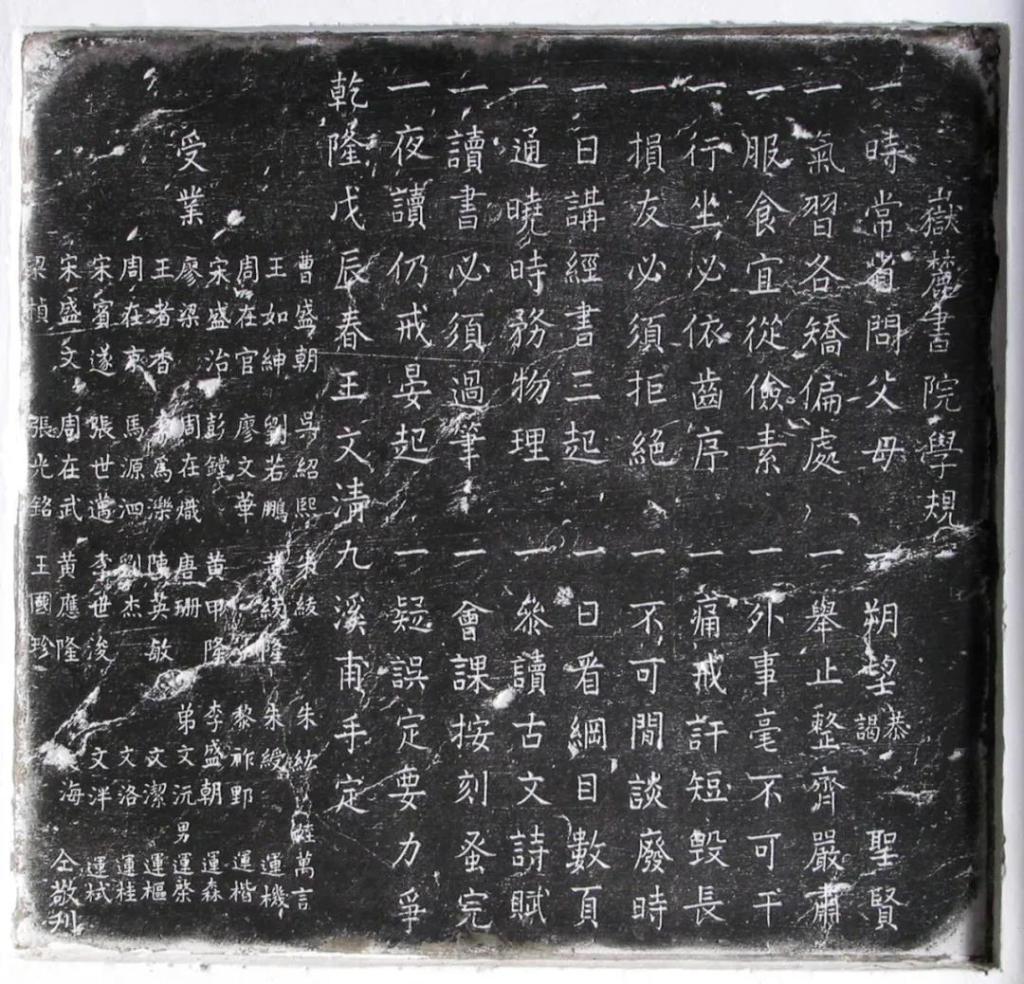 嶽麓書院學規
一時常省問父母 一朔望恭謁聖賢
一氣習各矯偏處 一舉止整齊嚴肅
一服食宜從儉素 一外事毫不可干
一行坐必依齒序 一痛戒訐短毀長
一損友必須拒絕 一不可閒談廢時
一日講經書三起 一日看綱目數頁
一通曉時務物理 一參讀古文詩賦
一讀書必須過筆 一會課按刻蚤完
一夜讀仍戒晏起 一疑誤定要力爭
乾隆戊辰春王文清九溪甫手定
受業
曹盛朝 吳紹熙 綾 朱紘 姪萬言
王如紳 劉若鵬 隆 朱綬 運機
周在官 廖文華 黎祚野 運楷
宋盛治 彭鏜 黃甲隆 李盛朝 運森
廖梁 周在熾 唐珊 弟文沅 男運棨
王者香 為濼 陳英敏 文潔 運樞
周在衷 馬源泗 劉杰 文洛 運桂
宋賓遂 張世邁 李世浚 文洋 運栻
宋盛文 周在武 黃應隆 文海 仝敬刊
梁楨 張光銘 王國珍